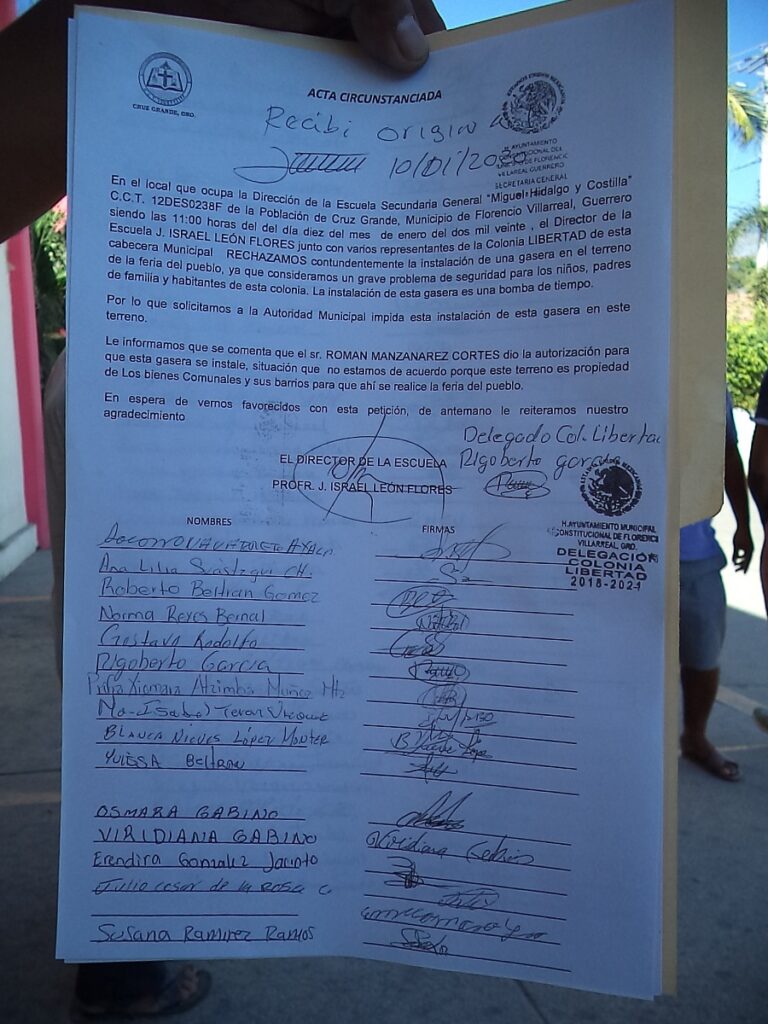 ACTA CIRCUNSTANCIADA
CRUZ GRANDE, GRO.
ESTADOS UNIDOS MEXICANOS
Recibi original
10/01/2020
H. AYUNTAMIENTO
VILLARREAL GUERRERO
SECRETARIA GENERAL
En el local que ocupa la Dirección de la Escuela Secundaria General "Miguel Hidalgo y Costilla"
C.C.T. 12DES0238F de la Población de Cruz Grande, Municipio de Florencio Villarreal, Guerrero
siendo las 11:00 horas del del día diez del mes de enero del dos mil veinte , el Director de la
Escuela J. ISRAEL LEÓN FLORES junto con varios representantes de la Colonia LIBERTAD de esta
cabecera Municipal RECHAZAMOS contundentemente la instalación de una gasera en el terreno
de la feria del pueblo, ya que consideramos un grave problema de seguridad para los niños, padres
de familia y habitantes de esta colonia. La instalación de esta gasera es una bomba de tiempo.
Por lo que solicitamos a la Autoridad Municipal impida esta instalación de esta gasera en este
terreno.
Le informamos que se comenta que el sr. ROMAN MANZANAREZ CORTES dio la autorización para
que esta gasera se instale, situación que no estamos de acuerdo porque este terreno es propiedad
de Los bienes Comunales y sus barrios para que ahí se realice la feria del pueblo.
En espera de vernos favorecidos con esta petición, de antemano le reiteramos nuestro
agradecimiento
Delegado Col. Libertad
EL DIRECTOR DE LA ESCUELA
Rigoberto garcia
PROFR. J. ISRAEL LEÓN FLORES
H. AYUNTAMIENTO MUNICIPAL
CONSTITUCIONAL DE FLORENCIO
VILLARREAL, GRO.
DELEGACIÓN
COLONIA
LIBERTAD
2018-2021
NOMBRES FIRMAS
Socorro Ayala
Ana Lilia Suastegui CH.
Roberto Beltran Gomez
Norma Reyes Bernal
Gustavo Rodolfo
Rigoberto Garcia
Profra Xiomara Atzimba Muñoz Mtz
Ma. Isabel Teran Vazquez
BLANCA NIEVES LÓPEZ MONTER
YULISSA BELTRAN
OSMARA GABINO
VIRIDIANA GABINO Viridiana
Erendira Gonzalez Jacinto
Julio cesar de la Rosa C
Susana Ramirez Ramos